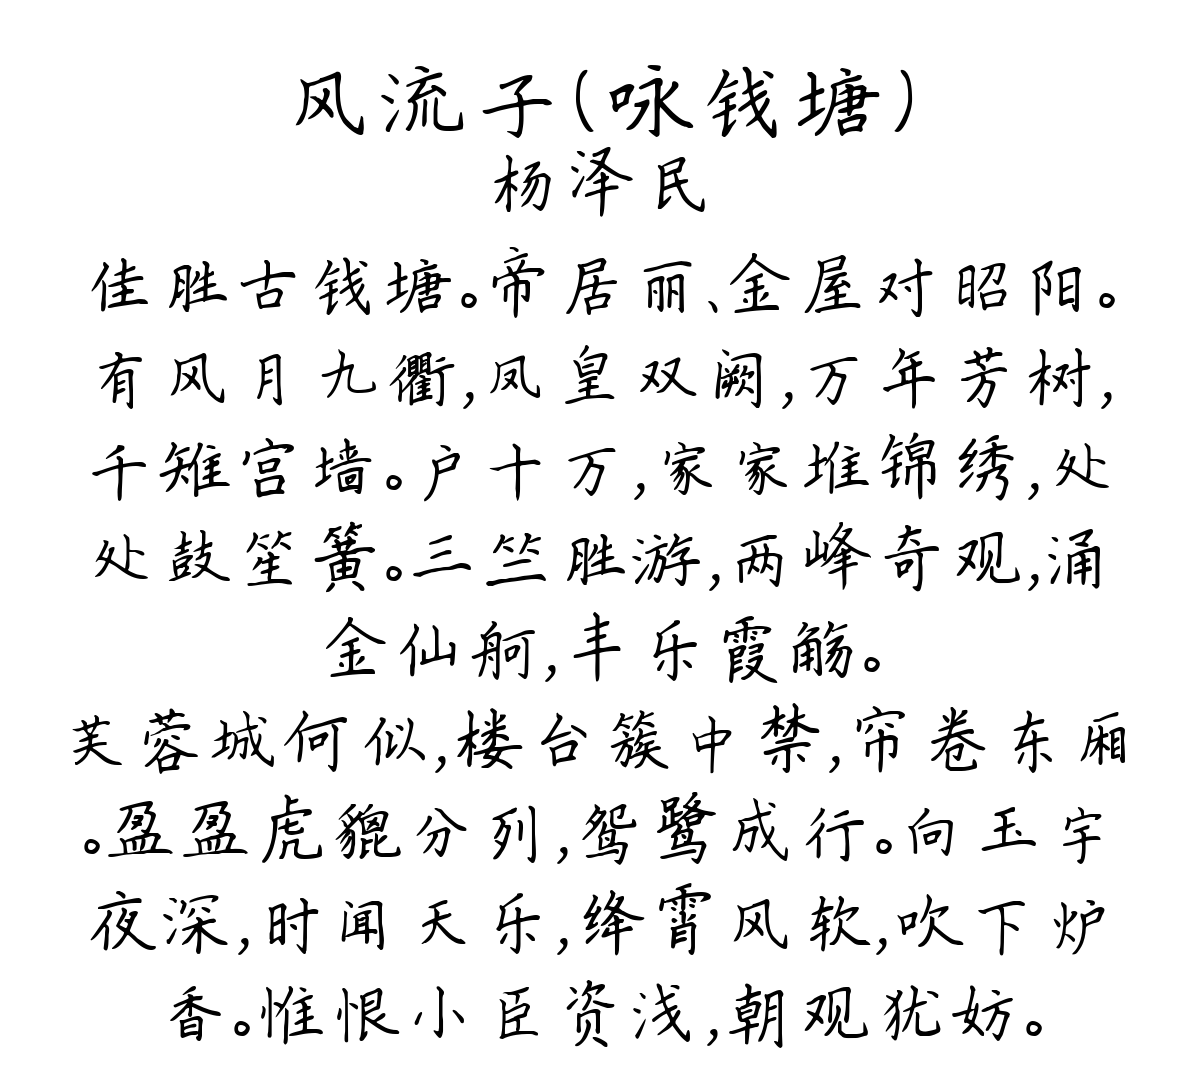 风流子(咏钱塘)
杨泽民
佳胜古钱塘。帝居丽、金屋对昭阳。
有风月九衢,凤皇双阙,万年芳树,
千雉宫墙。户十万,家家堆锦绣,处
处鼓笙簧。三竺胜游,两峰奇观,涌
金仙舸,丰乐霞觞。
芙蓉城何似,楼台簇中禁,帘卷东厢
。盈盈虎貔分列,鸳鹭成行。向玉宇
夜深,时闻天乐,绛霄风软,吹下炉
香。惟恨小臣资浅,朝观犹妨。